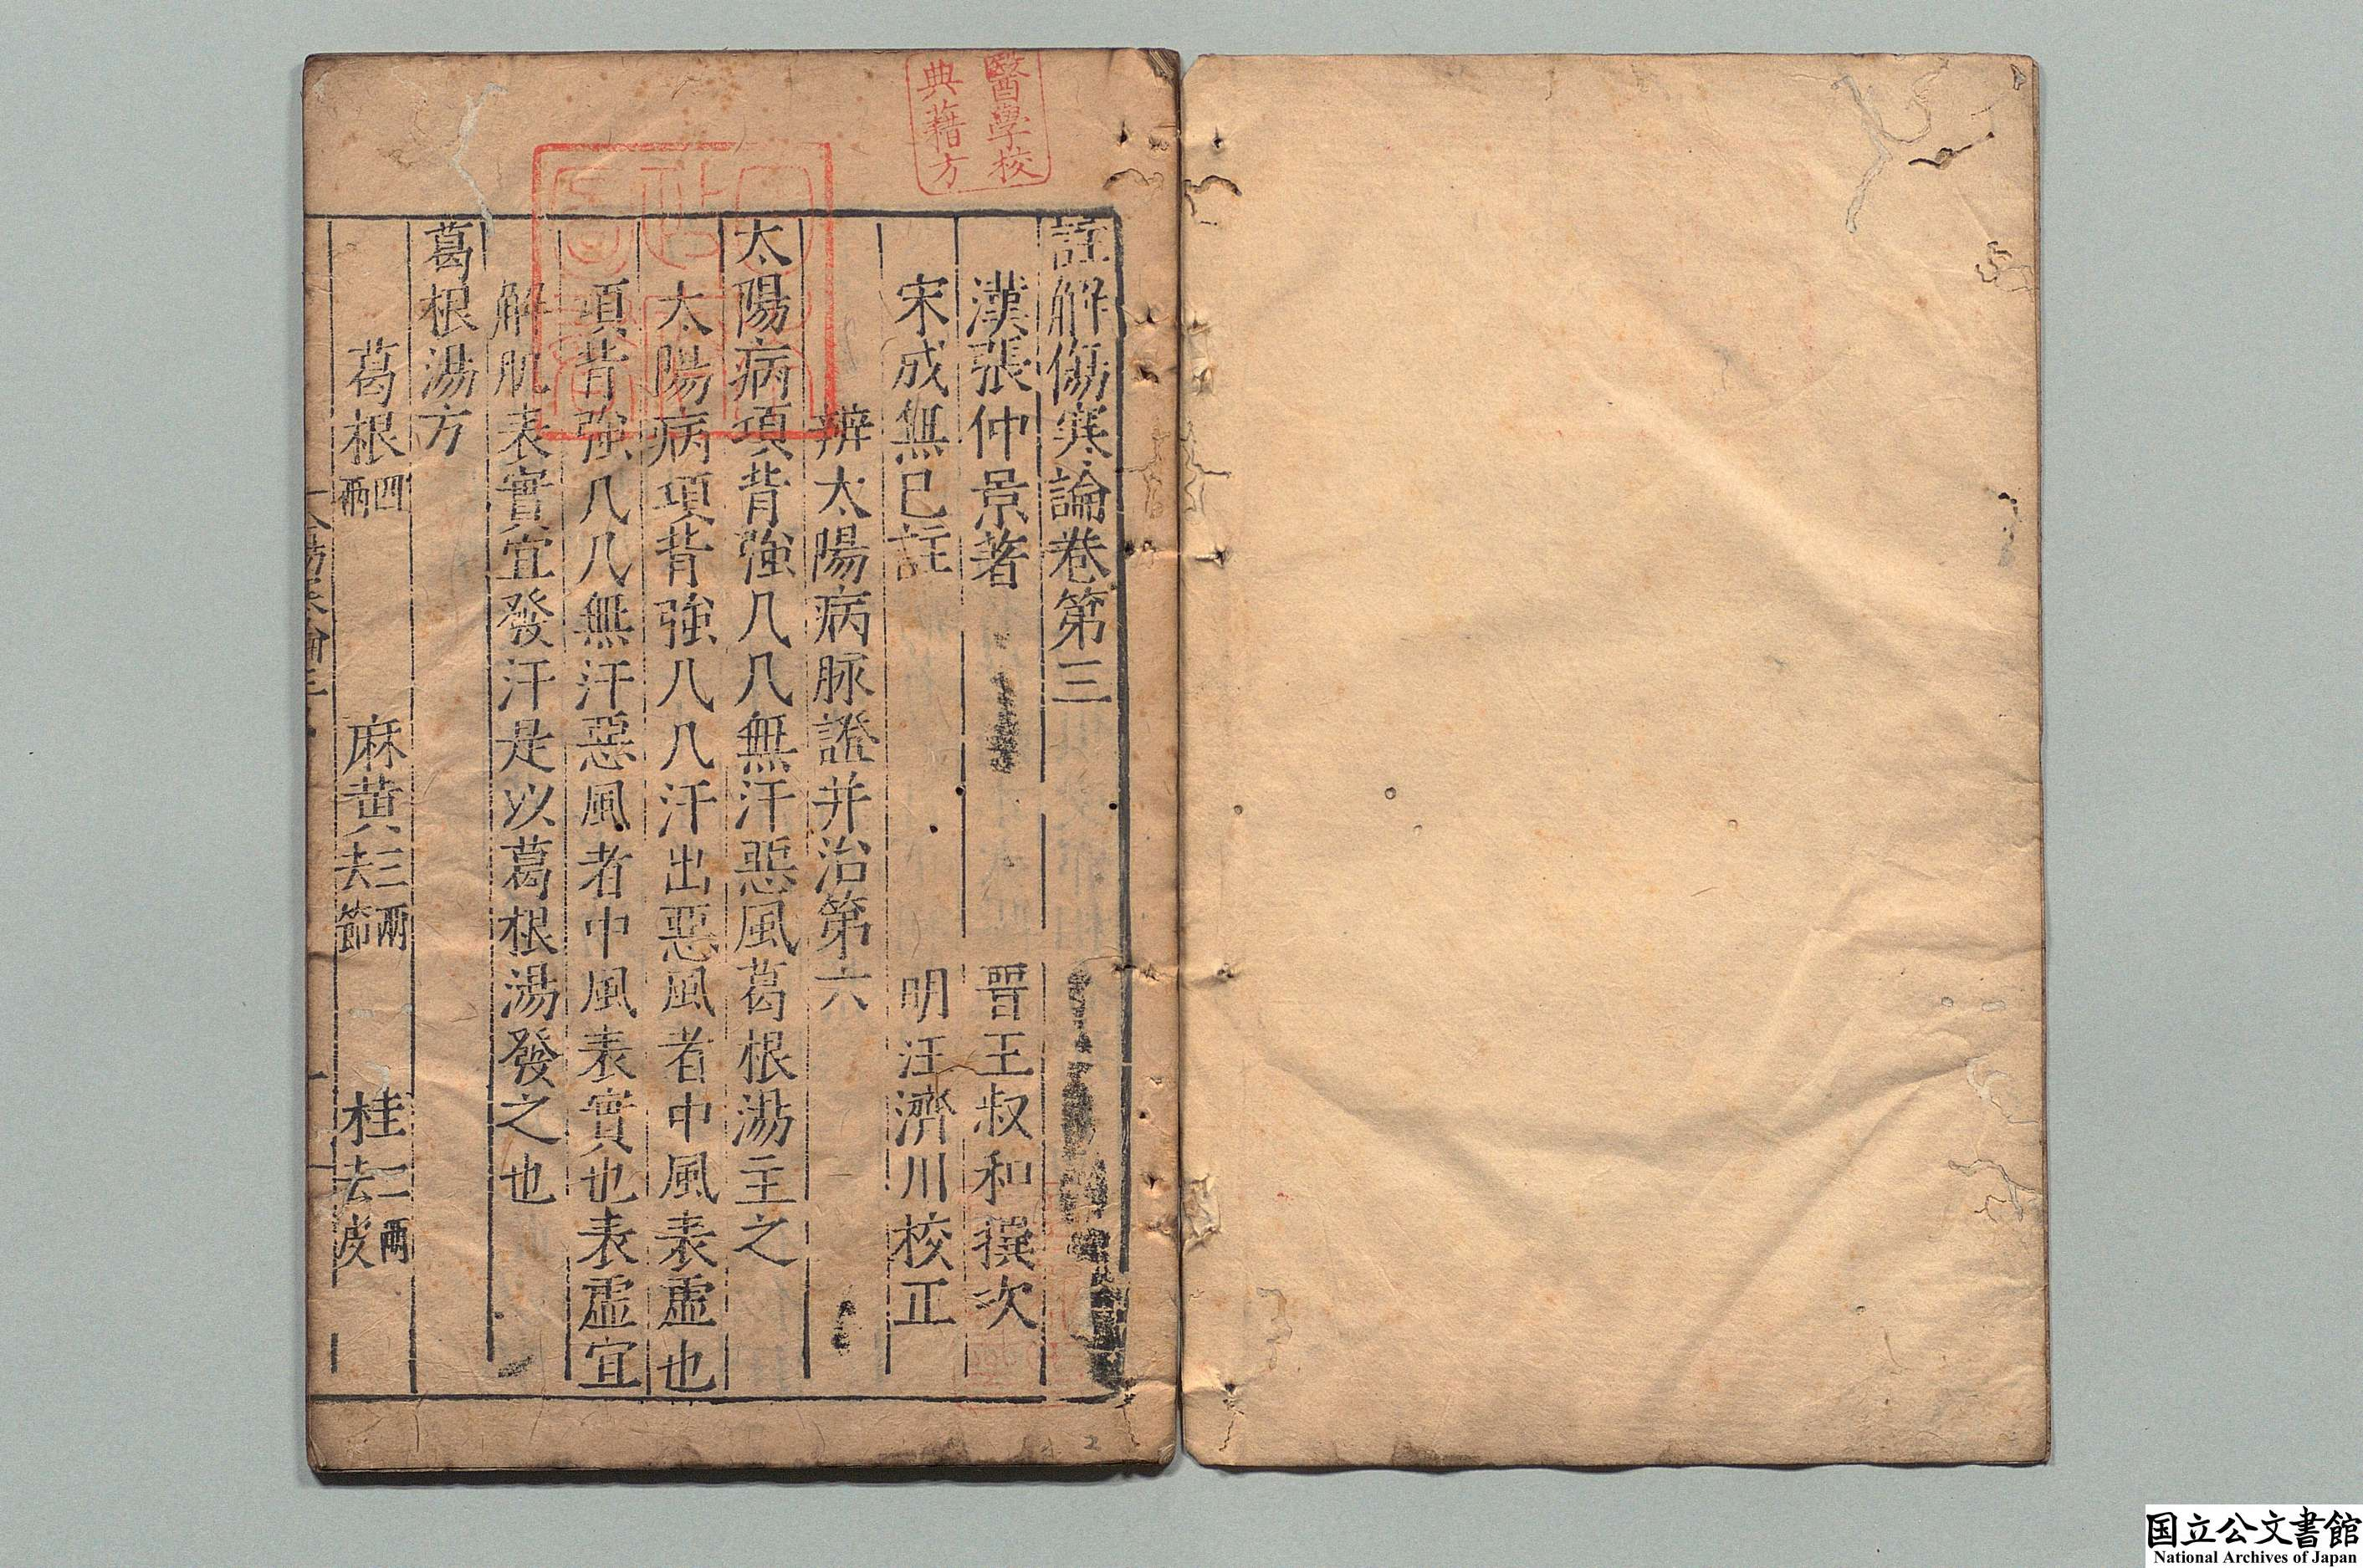 醫學校
典藉方
註解傷寒論卷第三
漢張仲景著 晉王叔和撰次
宋成無已註 明汪濟川校正
辨太陽病脉證并治第六
太陽病項背強几几無汗惡風葛根湯主之
太陽病項背強八八汗出惡風者中風表虛也
項背強八八無汗惡風者中風表實也表虛宜
解肌表實宜發汗是以葛根湯發之也
葛根湯方
葛根四兩 麻黃三兩去節 桂二兩去皮
国立公文書館
National Archives of Japan
2